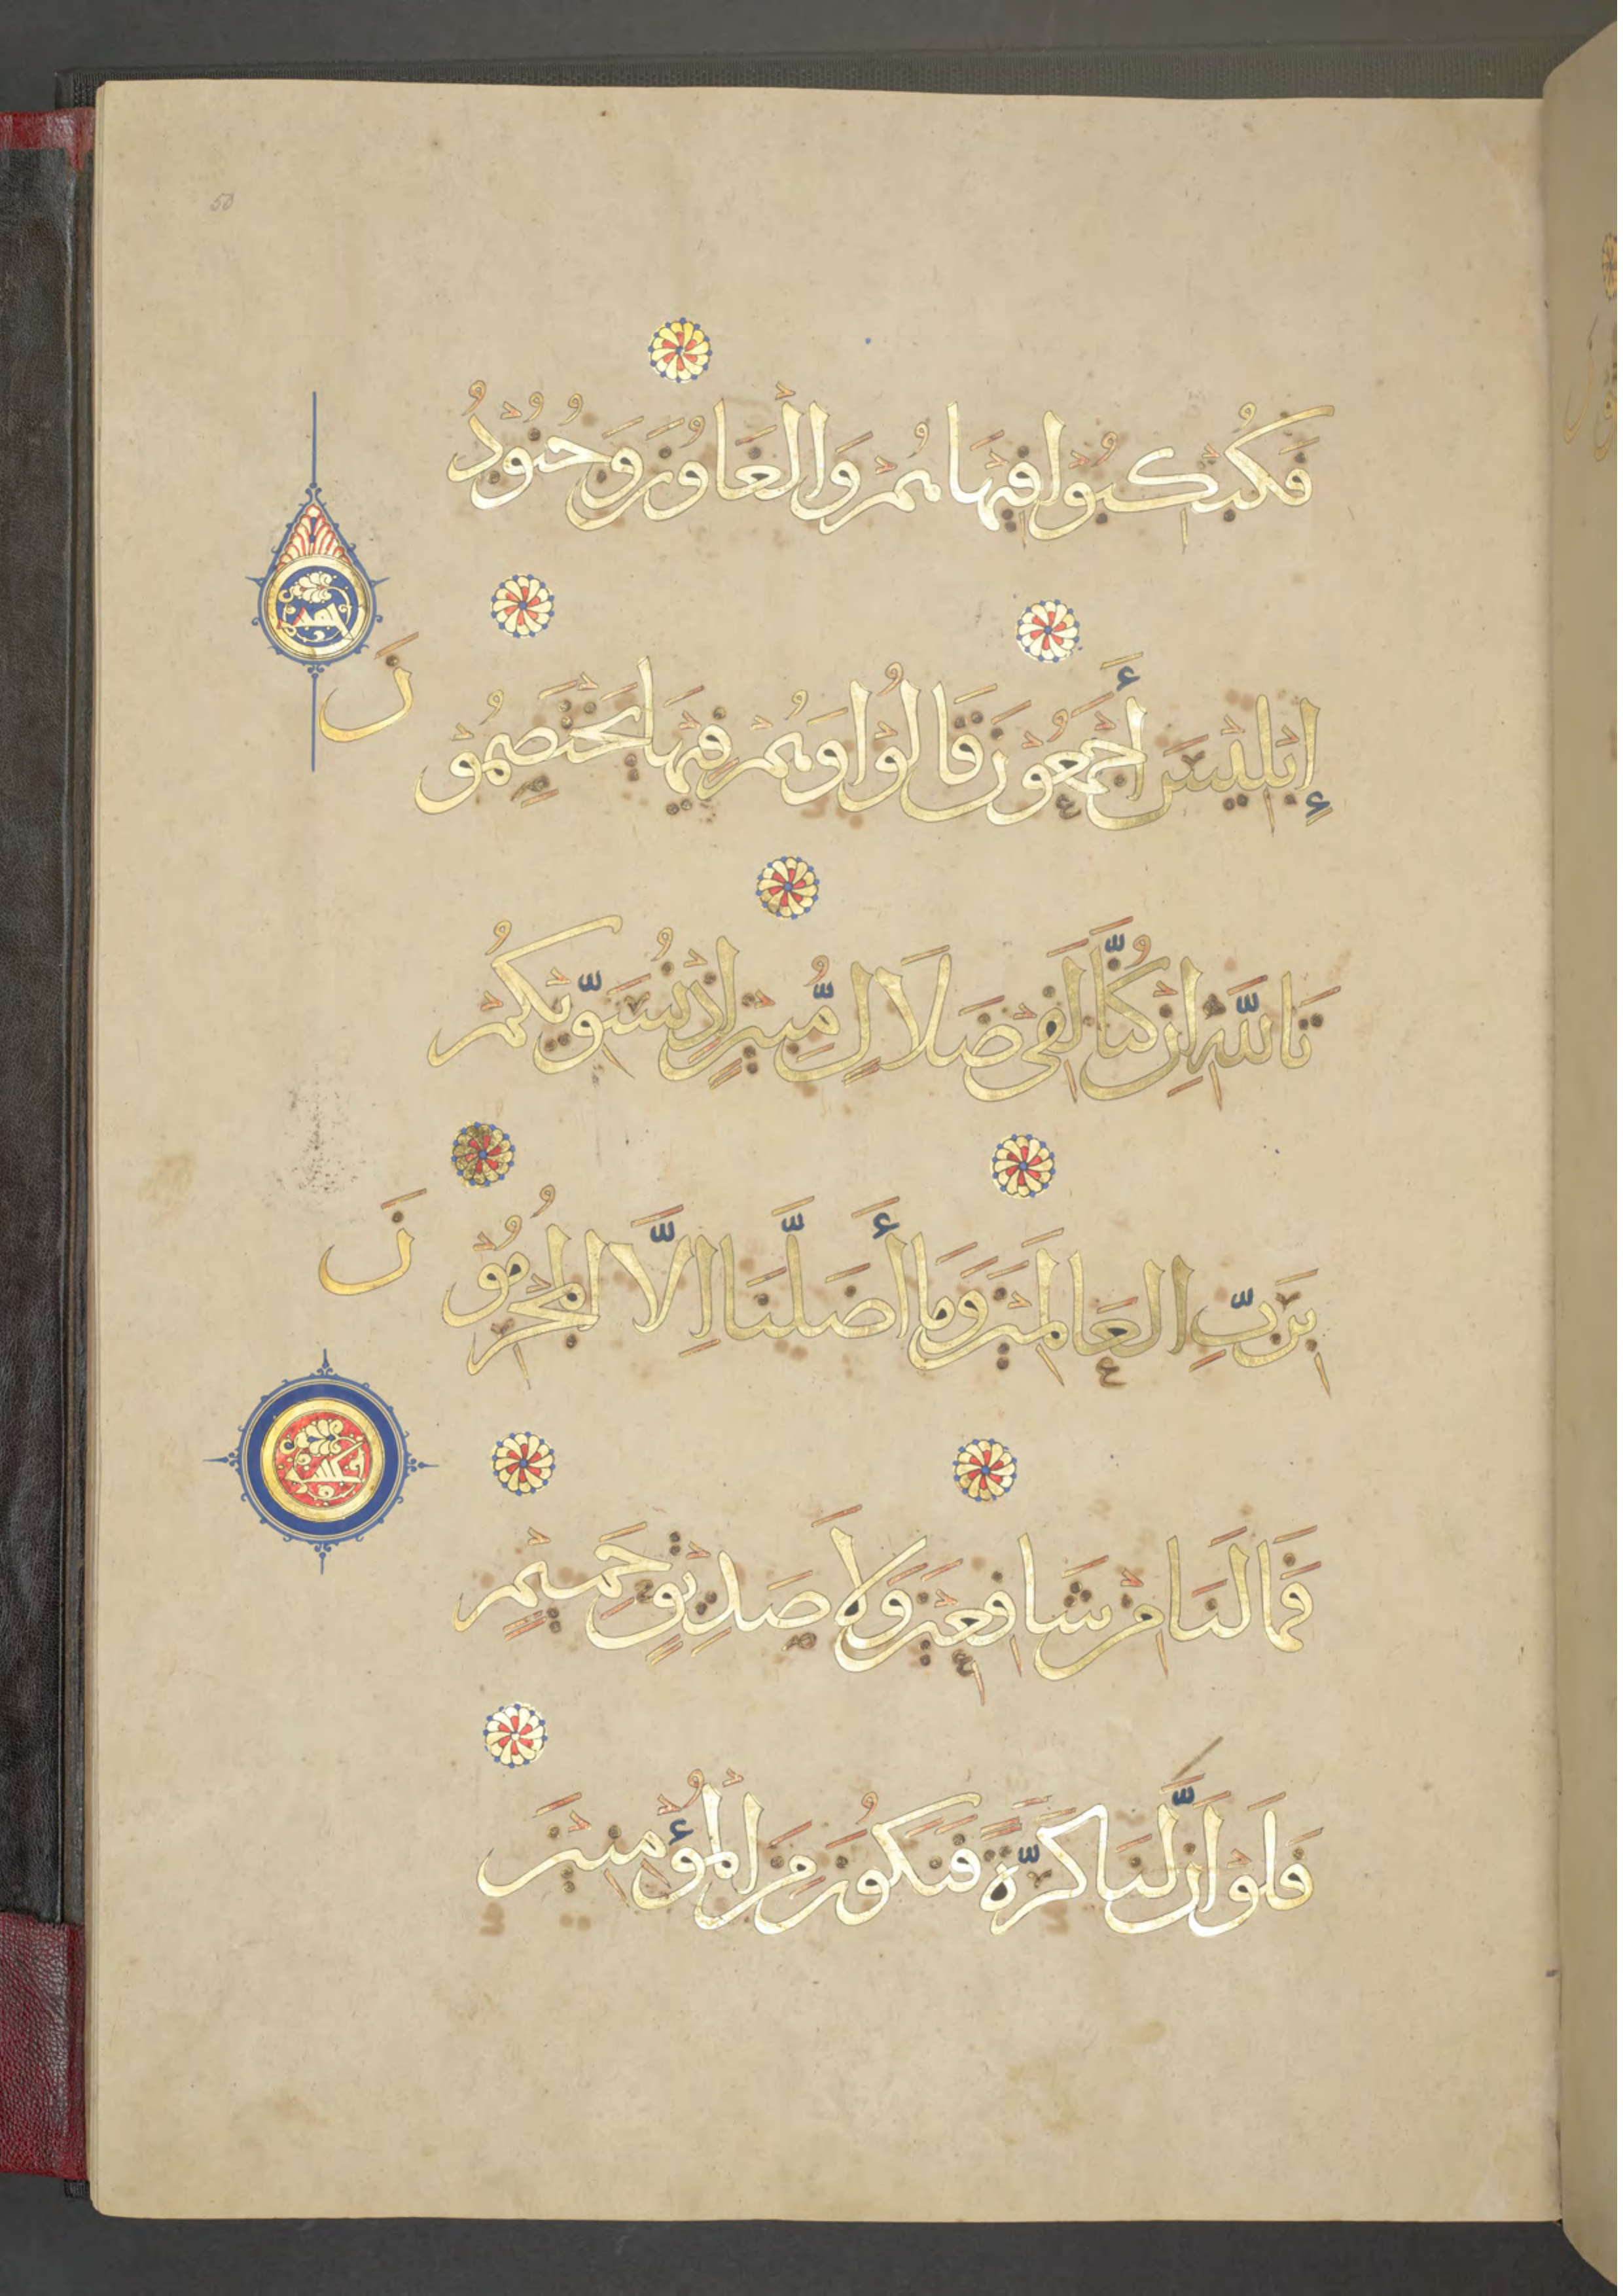 50
فَكُبْكِبُوْا فِيْهَا هُمْ وَالْغَاوُوْنَ وَجُنُوْدُ
إِبْلِيْسَ أَجْمَعُوْنَ قَالُوْا وَهُمْ فِيْهَا يَخْتَصِمُوْ
نَ
تَاللّٰهِ اِنْ كُنَّا لَفِيْ ضَلَالٍ مُّبِيْنٍ اِذْ نُسَوِّيْكُمْ
بِرَبِّ الْعَالَمِيْنَ وَمَا أَضَلَّنَا اِلَّا الْمُجْرِمُوْ
نَ
فَمَا لَنَا مِنْ شَافِعِيْنَ وَلَا صَدِيْقٍ حَمِيْمٍ
فَلَوْ اَنَّ لَنَا كَرَّةً فَنَكُوْنَ مِنَ الْمُؤْمِنِيْنَ